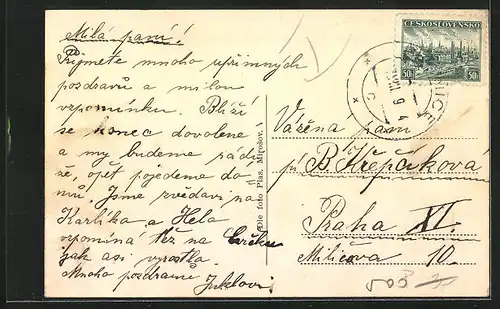 Milá paní!
Přijmete mnoho upřímných
pozdravů a milou
vzpomínku. Blíží
se konec dovolené
a my budeme rádi
že, opět pojedeme do
mů. Jsme zvědavi na
Karlíka a Hela
vzpomíná též na
jak asi vyrostla.
Mnoho pozdravů
Dle foto Plas. Mirošov.
ČESKOSLOVENSKO
50 50
Vážena paní
B. Křepčíková
Praha XI.
Miličova 10.